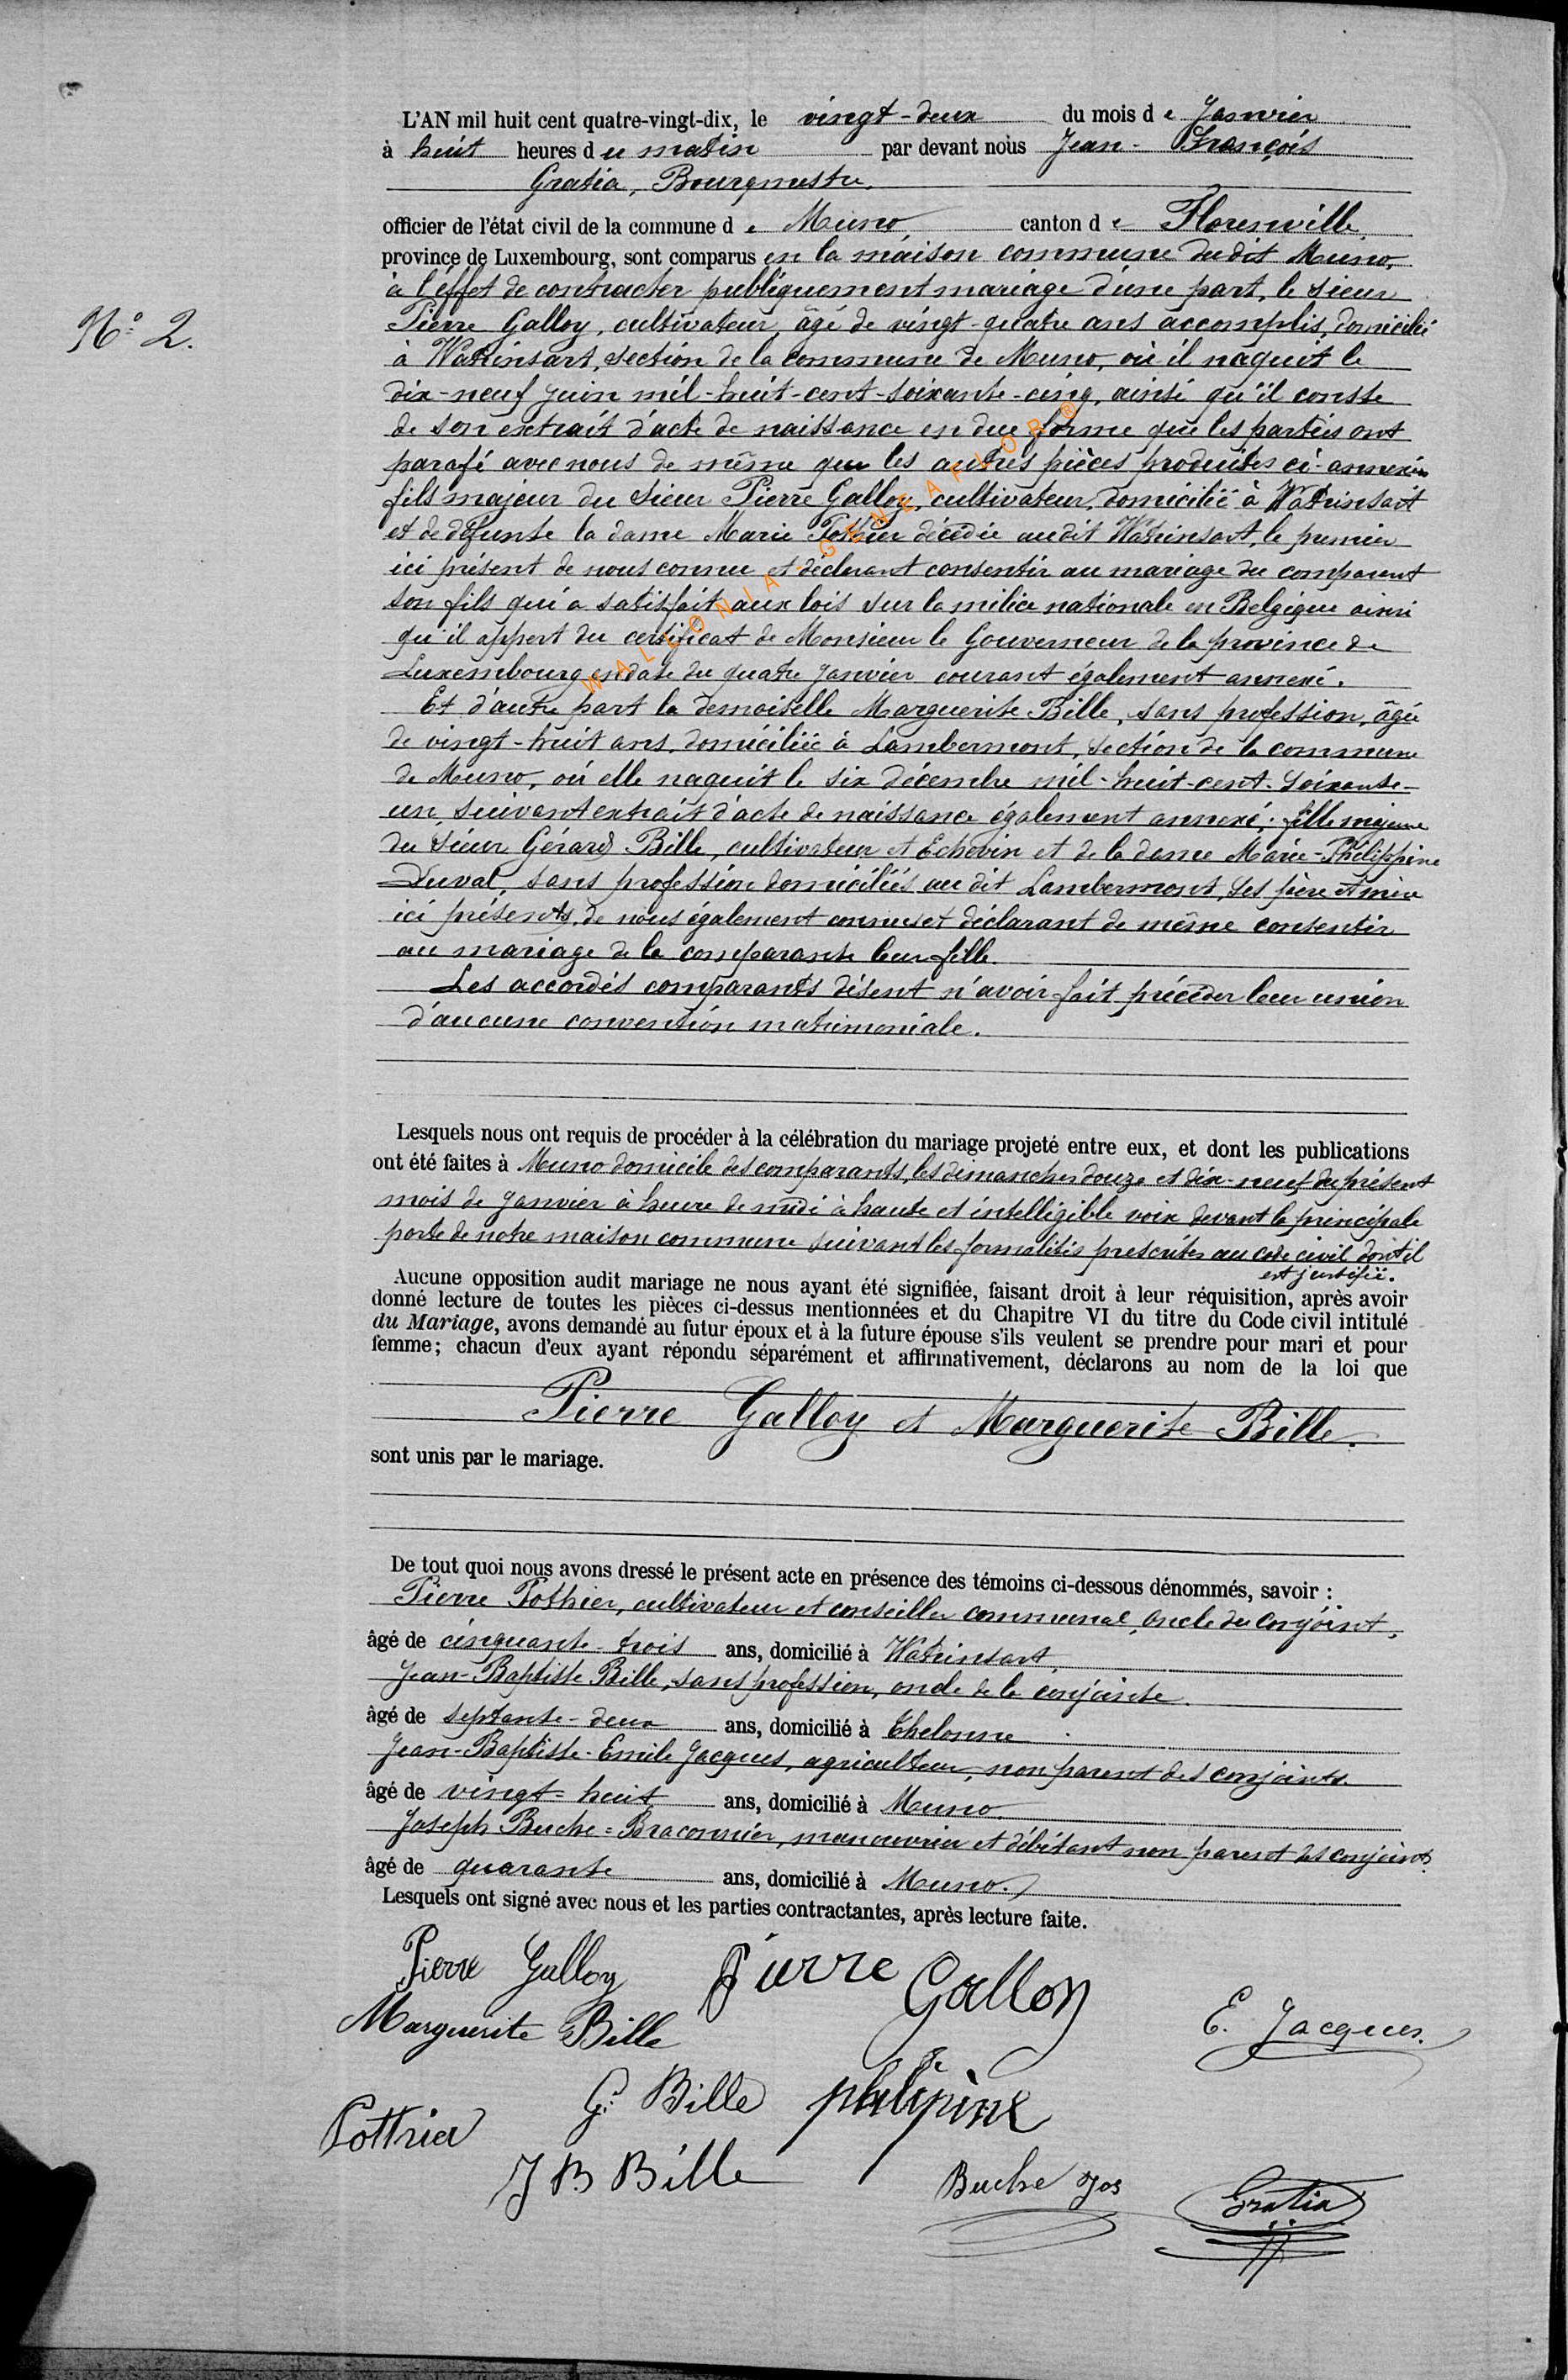 L'AN mil huit cent quatre-vingt-dix, le vingt-deux du mois de Janvier
à huit heures du matin par devant nous Jean-François
Gratia, Bourgmestre,
officier de l'état civil de la commune de Muno, canton de Florenville,
province de Luxembourg, sont comparus en la maison commune dudit Muno,
à l'effet de contracter publiquement mariage d'une part, le sieur
N° 2.
Pierre Galloy, cultivateur, âgé de vingt-quatre ans accomplis, domicilié
à Watrinsart, section de la commune de Muno, où il naquit le
dix-neuf juin mil-huit-cent-soixante-cinq, ainsi qu'il conste
de son extrait d'acte de naissance en due forme que les parties ont
parafé avec nous de même que les autres pièces produites ci-annexées
fils majeur du sieur Pierre Galloy, cultivateur, domicilié à Watrinsart
et de défunte la dame Marie Pothier décédée audit Watrinsart, le premier
ici présent de nous connu et déclarant consentir au mariage du comparant
son fils qui a satisfait aux lois sur la milice nationale en Belgique ainsi
qu'il appert du certificat de Monsieur le Gouverneur de la province de
Luxembourg en date du quatre janvier courant également annexé.
Et d'autre part la demoiselle Marguerite Bille, sans profession, âgée
de vingt-huit ans, domiciliée à Lambermont, section de la commune
de Muno, où elle naquit le six décembre mil-huit-cent-soixante-
un, suivant extrait d'acte de naissance également annexé; fille majeure
du sieur Gérard Bille, cultivateur et Echevin et de la dame Marie-Philippine
Duval, sans profession domiciliés au dit Lambermont, ses père et mère
ici présents, de nous également connus et déclarant de même consentir
au mariage de la comparante leur fille.
Les accordés comparants disent n'avoir fait précéder leur union
d'aucune convention matrimoniale.
Lesquels nous ont requis de procéder à la célébration du mariage projeté entre eux, et dont les publications
ont été faites à Muno domicile des comparants, les dimanches douze et dix-neuf du présent
mois de janvier à heure de midi à haute et intelligible voix devant la principale
porte de notre maison commune suivant les formalités prescrites au code civil dont il
est justifié.
Aucune opposition audit mariage ne nous ayant été signifiée, faisant droit à leur réquisition, après avoir
donné lecture de toutes les pièces ci-dessus mentionnées et du Chapitre VI du titre du Code civil intitulé
du Mariage, avons demandé au futur époux et à la future épouse s'ils veulent se prendre pour mari et pour
femme; chacun d'eux ayant répondu séparément et affirmativement, déclarons au nom de la loi que
Pierre Galloy et Marguerite Bille.
sont unis par le mariage.
De tout quoi nous avons dressé le présent acte en présence des témoins ci-dessous dénommés, savoir :
Pierre Pothier, cultivateur et conseiller communal, oncle du conjoint,
âgé de cinquante-trois ans, domicilié à Watrinsart,
Jean-Baptiste Bille, sans profession, oncle de la conjointe.
âgé de septante-deux ans, domicilié à Thelonne
Jean-Baptiste-Emile Jacques, agriculteur, non parent des conjoints.
âgé de vingt-huit ans, domicilié à Muno.
Joseph Buche=Braconnier, manouvrier et débitant non parent des conjoints
âgé de quarante ans, domicilié à Muno.
Lesquels ont signé avec nous et les parties contractantes, après lecture faite.
Pierre Galloy Pierre Galloy
Marguerite Bille E. Jacques.
G. Bille philipine
Pothier
J B Bille Buche Jos Gratia
WALLONIA - GENEAFLOR ®